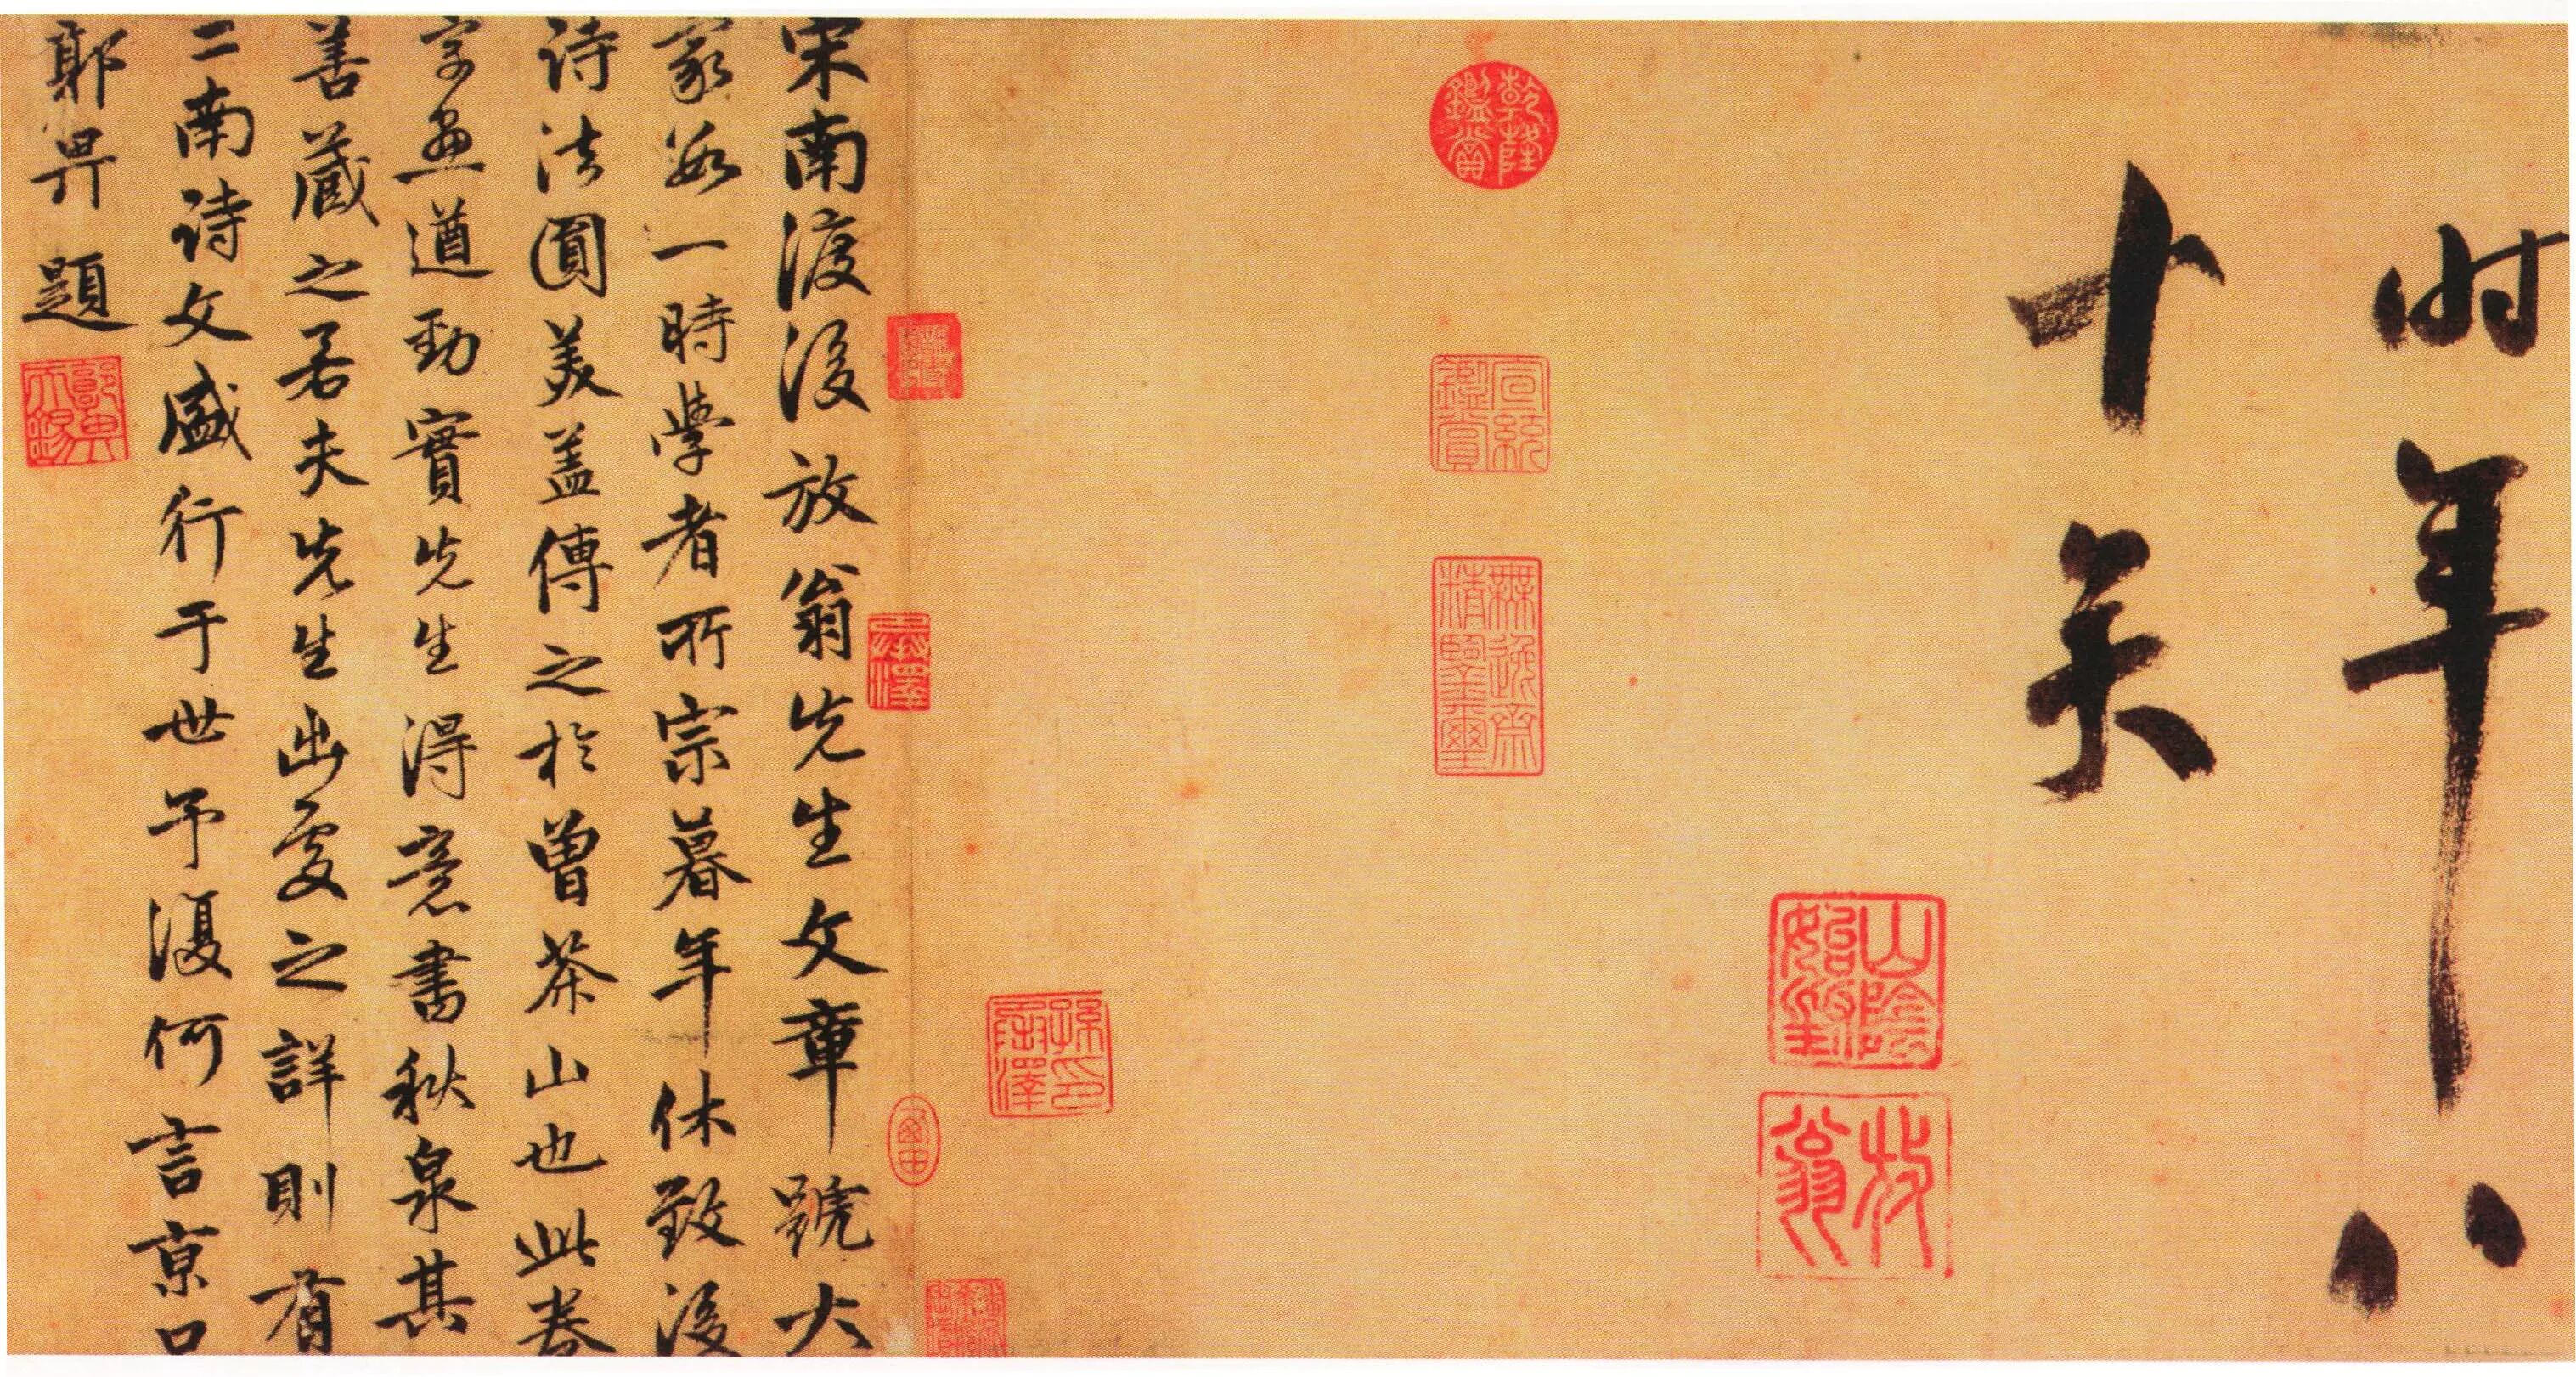 时年八
十矣
乾隆鑑賞
宣統鑑賞
無逸齋精鑒璽
山陰始封
放翁
宋南渡後放翁先生文章號大
家數一時學者所宗暮年休致後
詩法圓美蓋傳之於曾茶山也此卷
字畫遒勁實先生得意書秋泉其
善藏之若夫先生出處之詳則有
二南诗文盛行于世予復何言京口
郭畀題